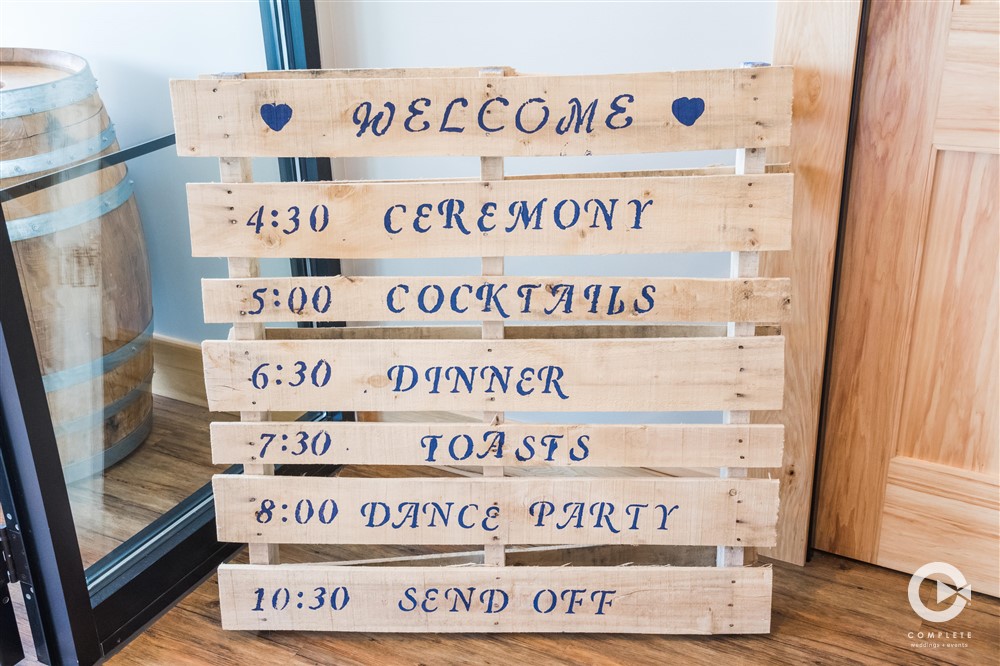 WELCOME
4:30 CEREMONY
5:00 COCKTAILS
6:30 DINNER
7:30 TOASTS
8:00 DANCE PARTY
10:30 SEND OFF
COMPLETE
weddings + events